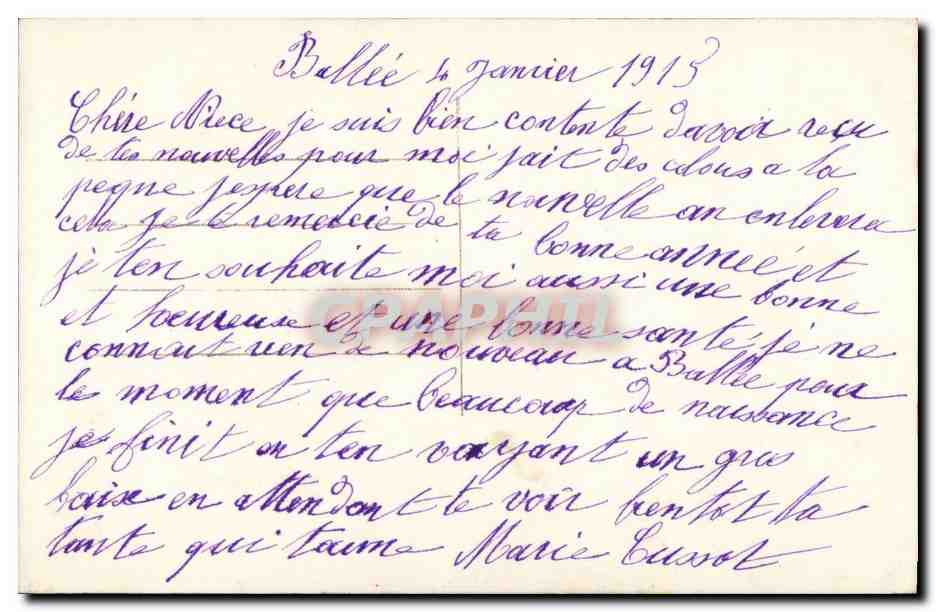 Ballée 4 Janvier 1913
Chére Niece je suis bien contente davoir reçu
de tes nouvelles pour moi jait des clous a la
pegne jespere que le nouvelle an enlevera
cela je te remercie de ta bonne année et
je ten souhaite moi aussi une bonne
et hoeureuse et une bonne santé, je ne
connait rien de nouveau a Ballée pour
le moment que beaucoup de naissance
je finit en ten voyant un gros
baise en attendant te voir bientot ta
tante qui taime Marie Cussot
CPAPHIL